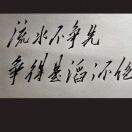 流水不争先
争得是滔滔不绝